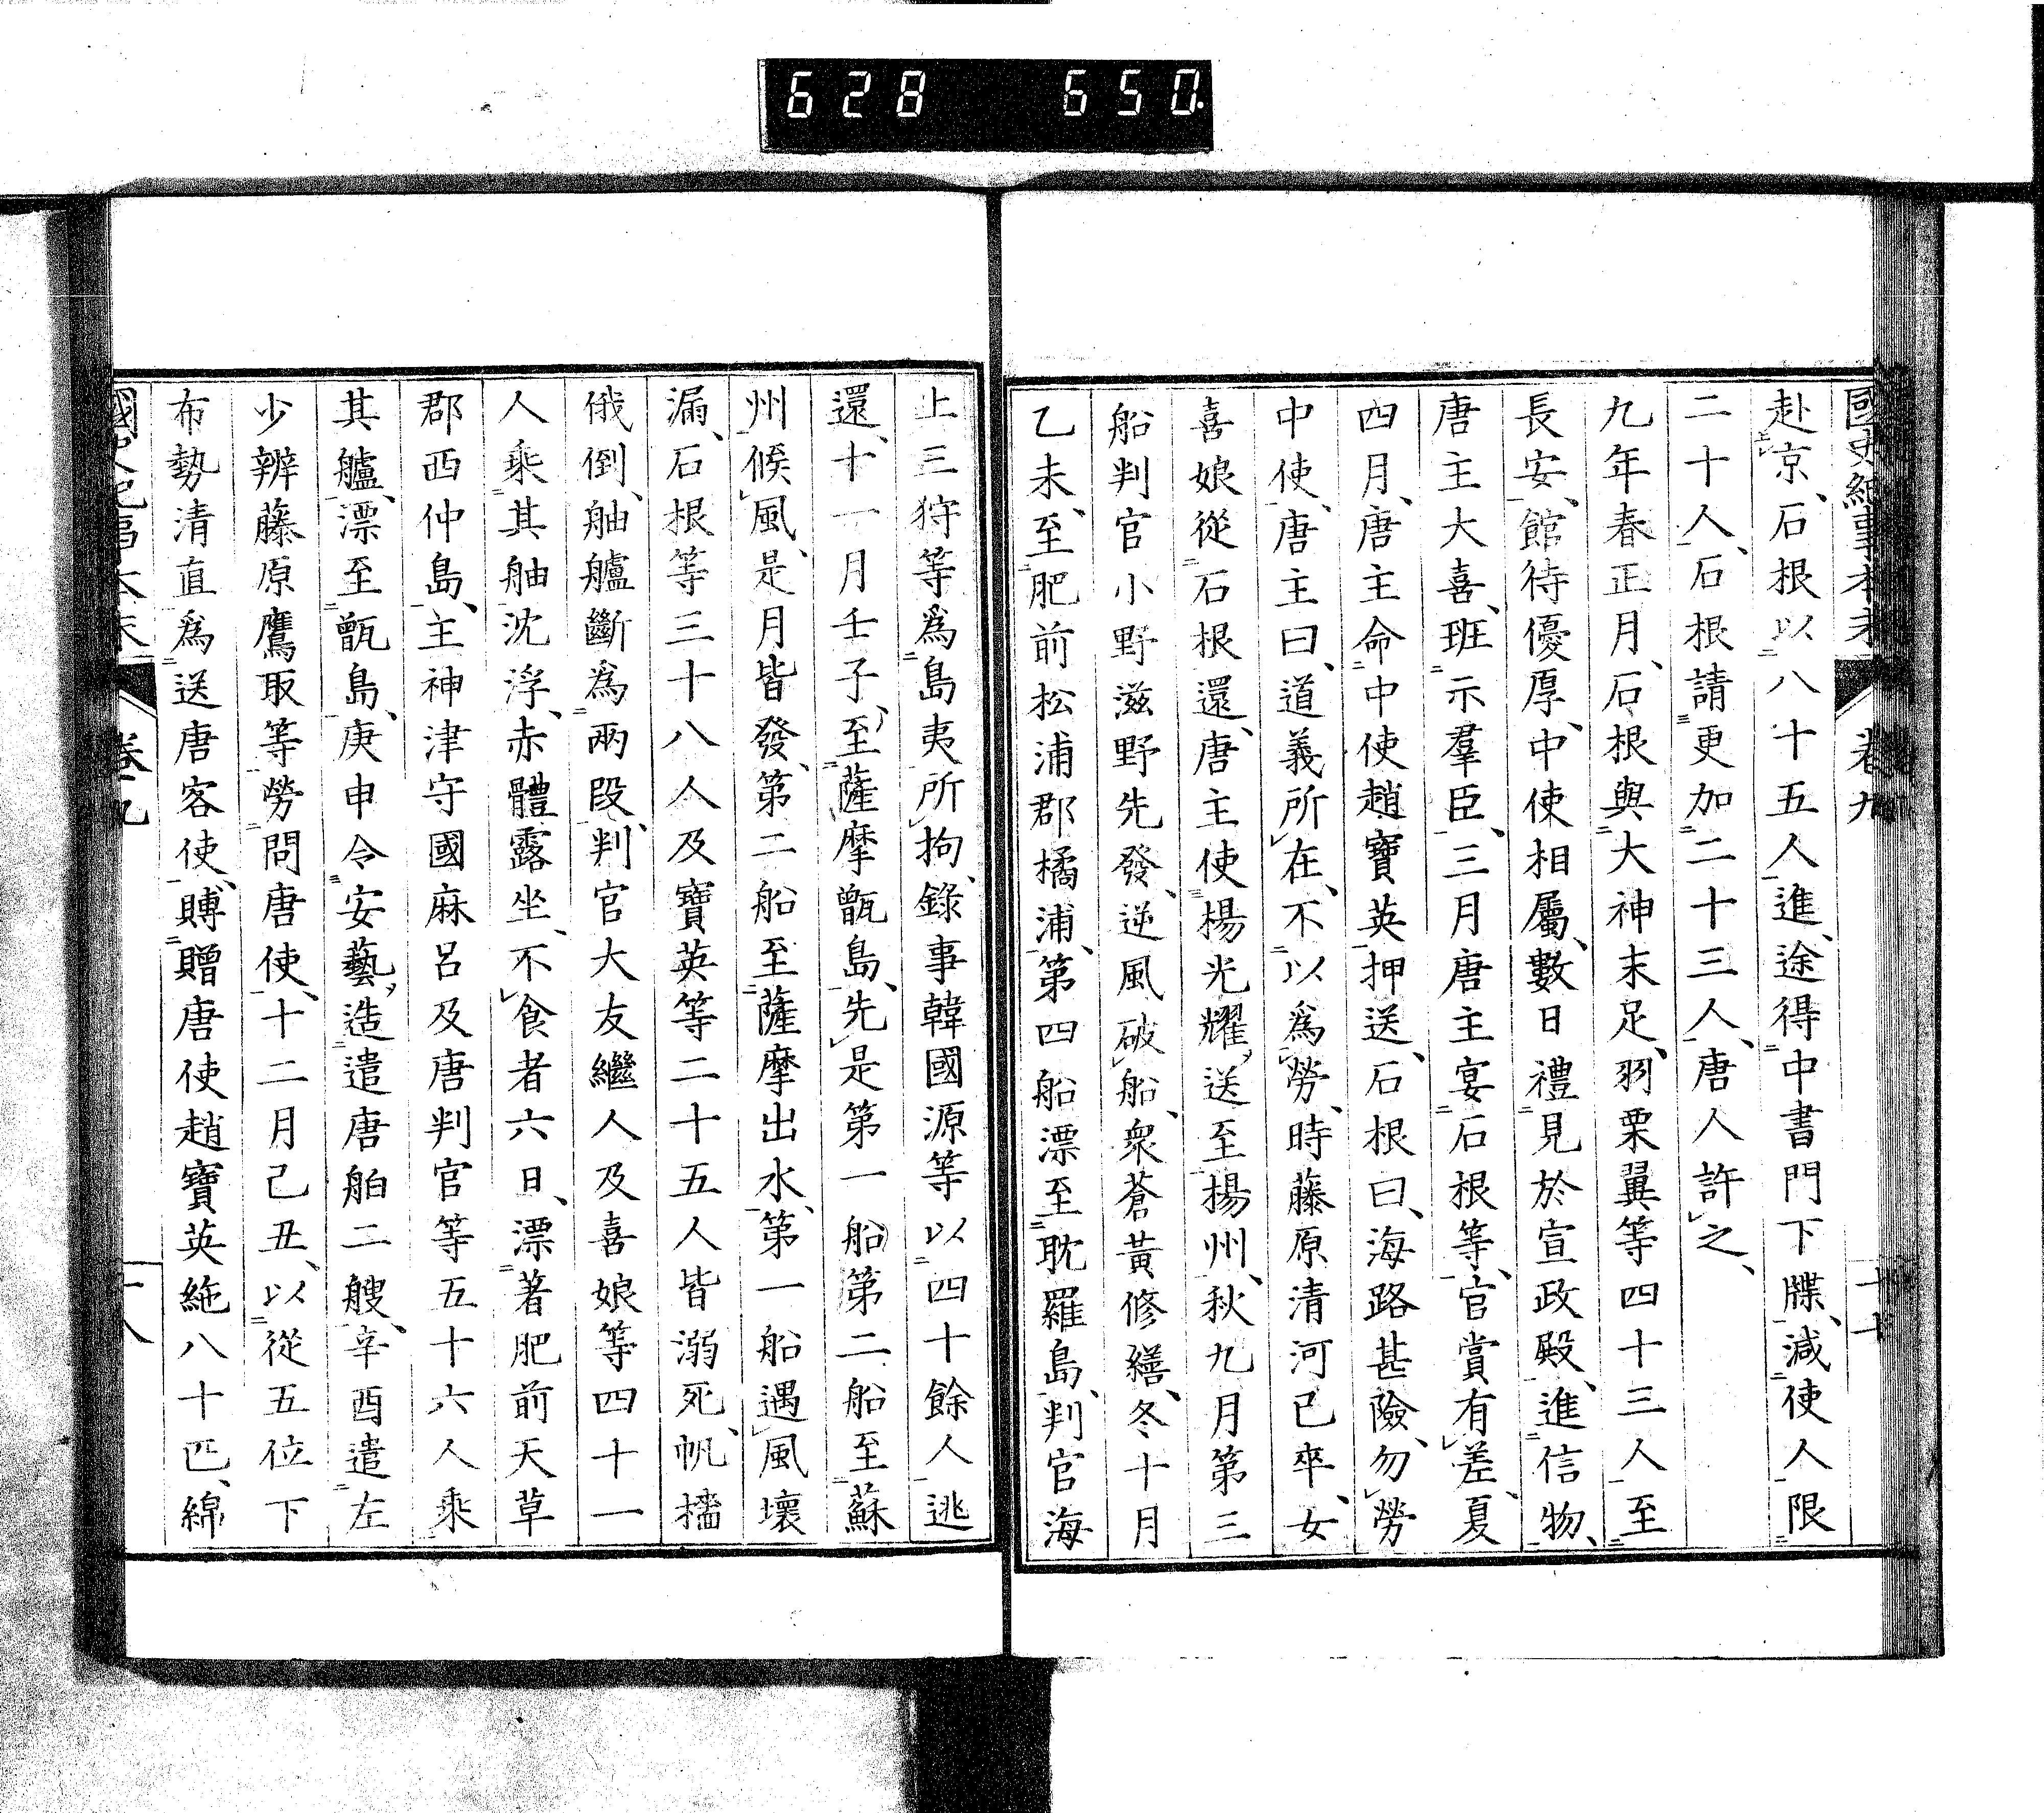 628 650.
國史紀事本末 卷九
赴京、石根以八十五人進、途得中書門下牒、減使人限
二十人、石根請更加二十三人、唐人許之、
九年春正月、石根與大神末足、羽栗翼等四十三人至
長安、館待優厚、中使相屬、數日禮見於宣政殿、進信物、
唐主大喜、班示羣臣、三月唐主宴石根等、官賞有差、夏
四月、唐主命中使趙寶英押送、石根曰、海路甚險、勿勞
中使、唐主曰、道義所在、不以爲勞、時藤原清河已卒、女
喜娘從石根還、唐主使楊光耀送至揚州、秋九月第三
船判官小野滋野先發、逆風破船、衆蒼黃修繕、冬十月
乙未、至肥前松浦郡橘浦、第四船漂至耽羅島、判官海
上三狩等爲島夷所拘、錄事韓國源等以四十餘人逃
還、十一月壬子、至薩摩甑島、先是第一船第二船至蘇
州候風、是月皆發、第二船至薩摩出水、第一船遇風壞
漏、石根等三十八人及寶英等二十五人皆溺死、帆檣
俄倒、舳艫斷爲兩段、判官大友繼人及喜娘等四十一
人乘其舳沈浮、赤體露坐、不食者六日、漂著肥前天草
郡西仲島、主神津守國麻呂及唐判官等五十六人乘
其艫、漂至甑島、庚申令安藝造遣唐舶二艘、辛酉遣左
少辨藤原鷹取等勞問唐使、十二月己丑、以從五位下
布勢清直爲送唐客使、賻贈唐使趙寶英絁八十匹、綿
卷九